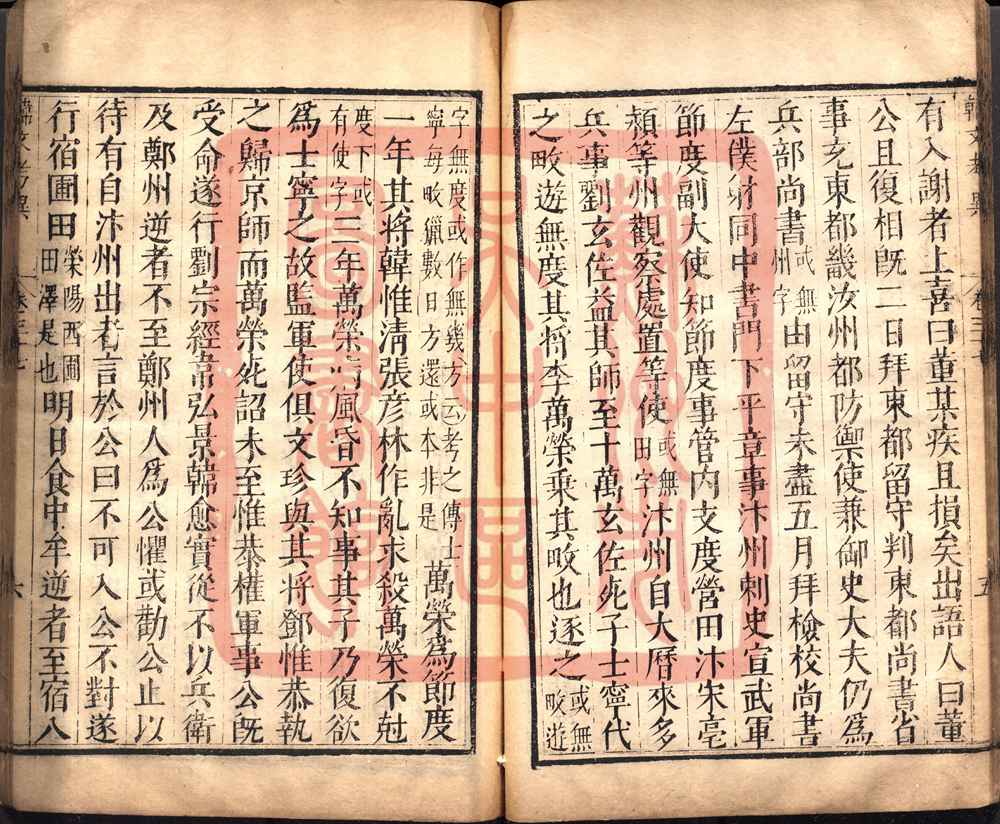 有入謝者上喜曰董某疾且損矣出語人曰董
公且復相旣二日拜東都留守判東都尚書省
事充東都畿汝州都防禦使兼御史大夫仍爲
兵部尚書或無州字由留守未盡五月拜檢校尚書
左僕射同中書門下平章事汴州刺史宣武軍
節度副大使知節度事管內支度營田汴宋亳
潁等州觀察處置等使或無田字汴州自大曆來多
兵事劉玄佐益其師至十萬玄佐死子士寧代
之畋遊無度其將李萬榮乘其畋也逐之或無畋遊
字無度或作無幾方云考之傳士寧每畋獵數日方還或本非是萬榮爲節度
一年其將韓惟淸張彥林作亂求殺萬榮不尅
度下或有使字三年萬榮病風昏不知事其子乃復欲
爲士寧之故監軍使俱文珍與其將鄧惟恭執
之歸京師而萬榮死詔未至惟恭權軍事公旣
受命遂行劉宗經韋弘景韓愈實從不以兵衛
及鄭州逆者不至鄭州人爲公懼或勸公止以
待有自汴州出者言於公曰不可入公不對遂
行宿圃田滎陽西圃田澤是也明日食中牟逆者至宿八
韓文考異
六